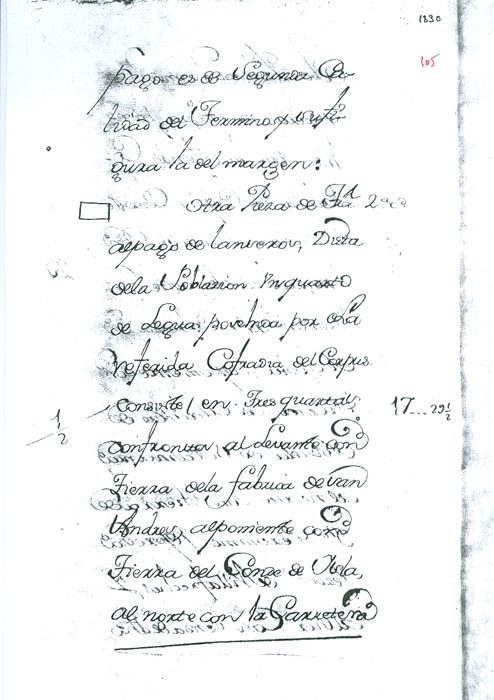 1830
105
pago es de Segunda Ca
lidad del Termino, y su fi
gura la del margen:
Otra Pieza de Tra
al pago de
de la Poblazion un quarto
de Legua posehida por la
referida Cofradia del Corpus
consiste en Tres quartas
17... 29 1/2
1/2
confronta al Levante con
Tierra de la fabrica de san
Andres, al poniente con
Tierra del Conde de
al norte con la Carretera